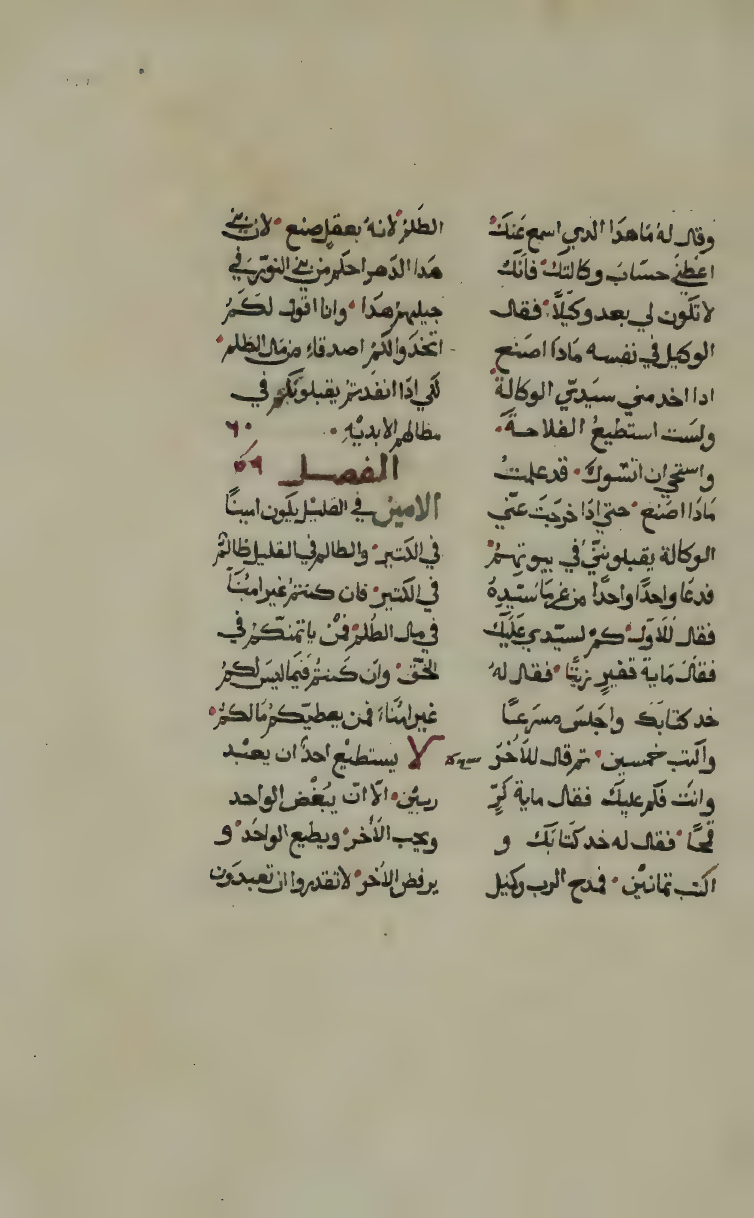 وقال له مَا هدَا الدي اسمع عَنكَ
اعَطِني حسَابَ وكالتكَ فانَكَ
لا تكَون لي بعد وكيَلاً فقَالَ
الوكيل في نفسه مَادَا اصَنع
ادا اخد مني سَيدي الوكالةَ
ولسَت استطيعُ الفلاحَةَ
واستحي ان اتسَوكَ قد علمتُ
مَادَا اصَنع حتى ادَا خرَجَت عَني
الوكالة يقبلونني في بيوتهمْ
فدعَا واحدًا واحدًا من غرمَا سَيدِهُ
فقالَ للاَوَلَ كمْ لسيَدي عَليَكَ
فقالَ مَاية قفيرٍ زيتًا فقالَ لهُ
خد كتَابَكَ واجَلسَ مسرَعًا
واكتب خمسين ثم قالَ للاَخرَ
وانتَ فكَم عليكَ فقالَ ماية كرٍّ
قمحًا فقالَ له خد كتَابَكَ و
اكتب تمانيَن فمدح الرب وكيل
الظَلمْ لانهُ بعقلٍ صنع لان بني
هَدا الدَهر احكم من بني النورَ في
جيلهمْ هدَا وانا اقول لكَمْ
اتخدَوا لكمْ اصدقاءِ من مَال الظلم
لكَي ادَا انفدتمْ يقبلونكم في
مظالهم الابديَهِ ٦٠
الفصل ٥٦
الامين في القليل يكَون امينًا
في الكَتير والظالم في القليل ظالمْ
في الكَتير فان كنتمْ غير امنَاَ
في مال الظُلمْ فمنْ ياتمنَكمْ في
الحَق وان كَنتمْ فيمَا ليسَ لكمْ
غير امنَاءَ فمن يعطيَكمْ مَا لكمْ
لا يستطيْع احدٌ ان يعبْد
ربيْن الاّ انّ يبُغْض الواحد
ويحب الاَخر ويطيع الواحَد و
يرفض الاَخر لا تقدروا ان تعبدَون